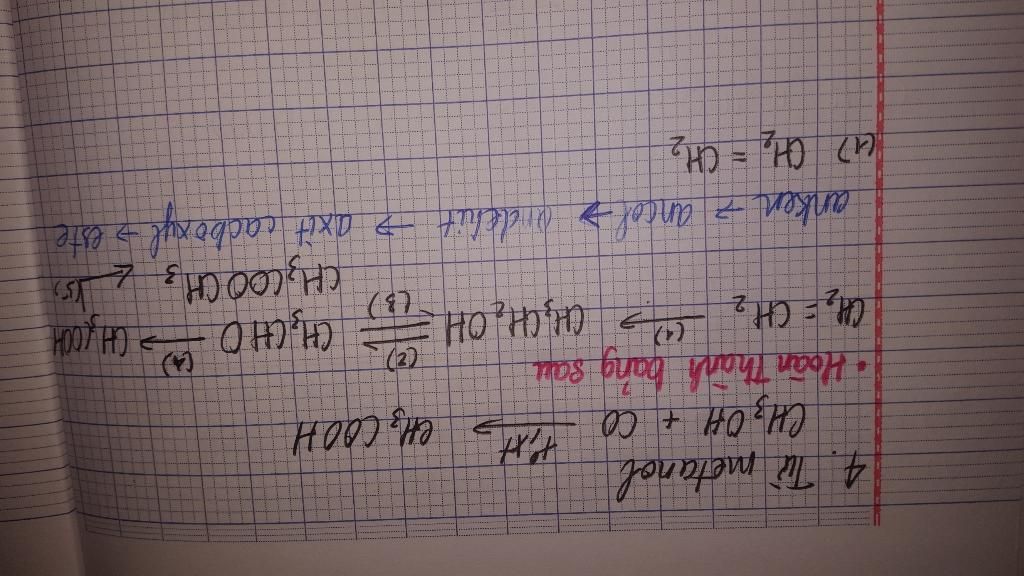 4. Từ metanol
CH₃OH + CO →(t°, xt) CH₃COOH
• Hoàn thành bảng sau
CH₂ = CH₂ →(1) CH₃CH₂OH ⇌(2)(3) CH₃CHO →(4) CH₃COOH
CH₃COOCH₃ ←(5)
anken → ancol → anđehit → axit cacboxyl → este
(1) CH₂ = CH₂